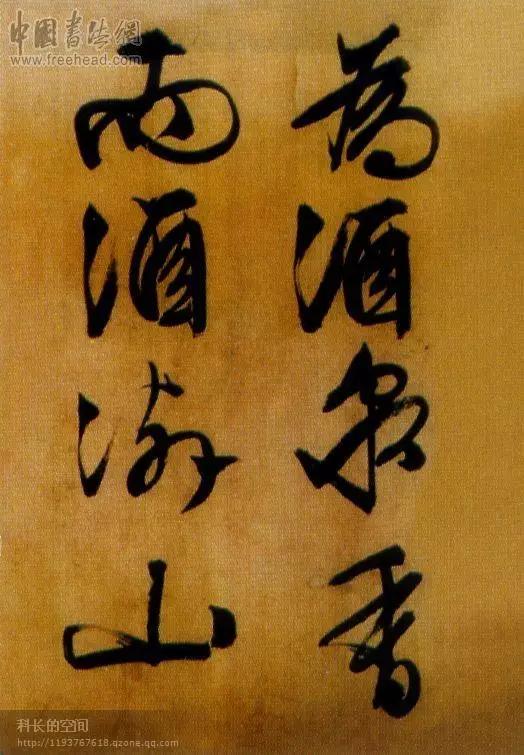 中國書法網
www.freehead.com
為酒泉香
而酒洌山
科长的空间
http://1193767618.qzone.qq.com